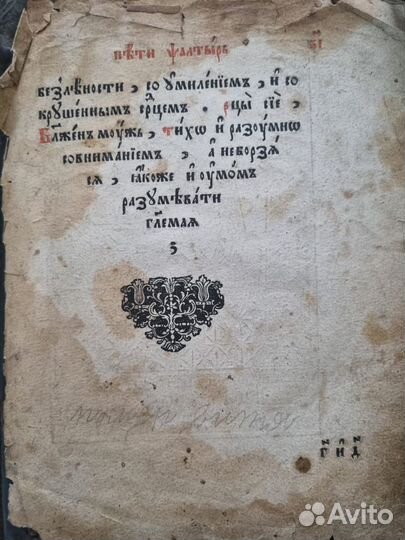 пѣ́ти ѱалты́рь
без̾лѣ́ности, со ᲂумиле́нїемъ, и҆ со
крꙋше́ннымъ ср҃цемъ. рцы̀ сїѐ,
Бл҃же́нъ мꙋ́жъ, ти́хѡ и҆ разꙋ́мнѡ
совнима́нїемъ, а҆ неборзѧ́
сѧ, ꙗ҆́коже и҆ ᲂумо́мъ
разꙋмѣва́ти
гл҃емаѧ
Avito